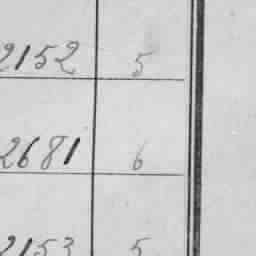 2152 5
2681 6
2153 5